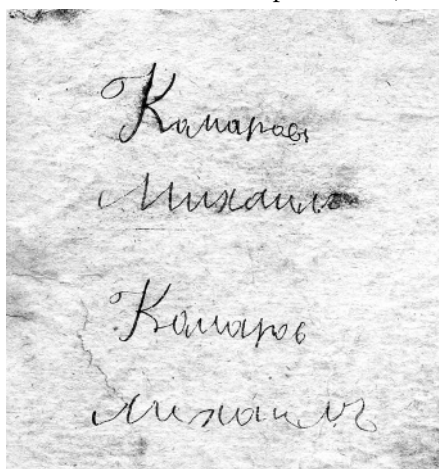 Камаровъ
Михаилъ
Камаров
Михаилъ